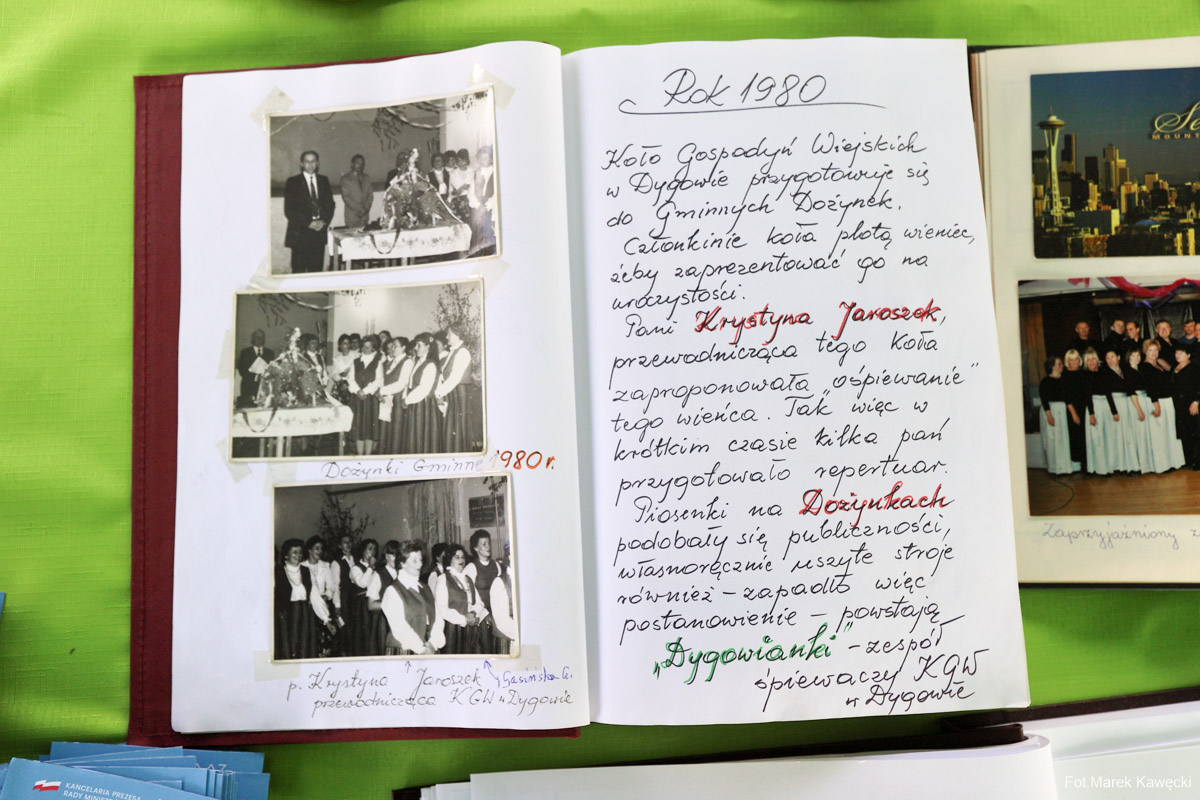 Dożynki Gminne 1980 r.
p. Krystyna Jaroszek
Gasińska G.
przewodnicząca KGW w Dygowie
Rok 1980
Koło Gospodyń Wiejskich
w Dygowie przygotowuje się
do Gminnych Dożynek.
Członkinie koła plotą wieniec,
żeby zaprezentować go na
uroczystości.
Pani Krystyna Jaroszek,
przewodnicząca tego koła
zaproponowała „ośpiewanie"
tego wieńca. Tak więc w
krótkim czasie kilka pań
przygotowało repertuar.
Piosenki na Dożynkach
podobały się publiczności,
własnoręcznie uszyte stroje
również – zapadło więc
postanowienie – powstają
„Dygowianki" – zespół
śpiewaczy KGW
w Dygowie
MOUNT
Zaprzyjaźniony z
KANCELARIA PREZESA
RADY MINIST
Fot.Marek Kawęcki